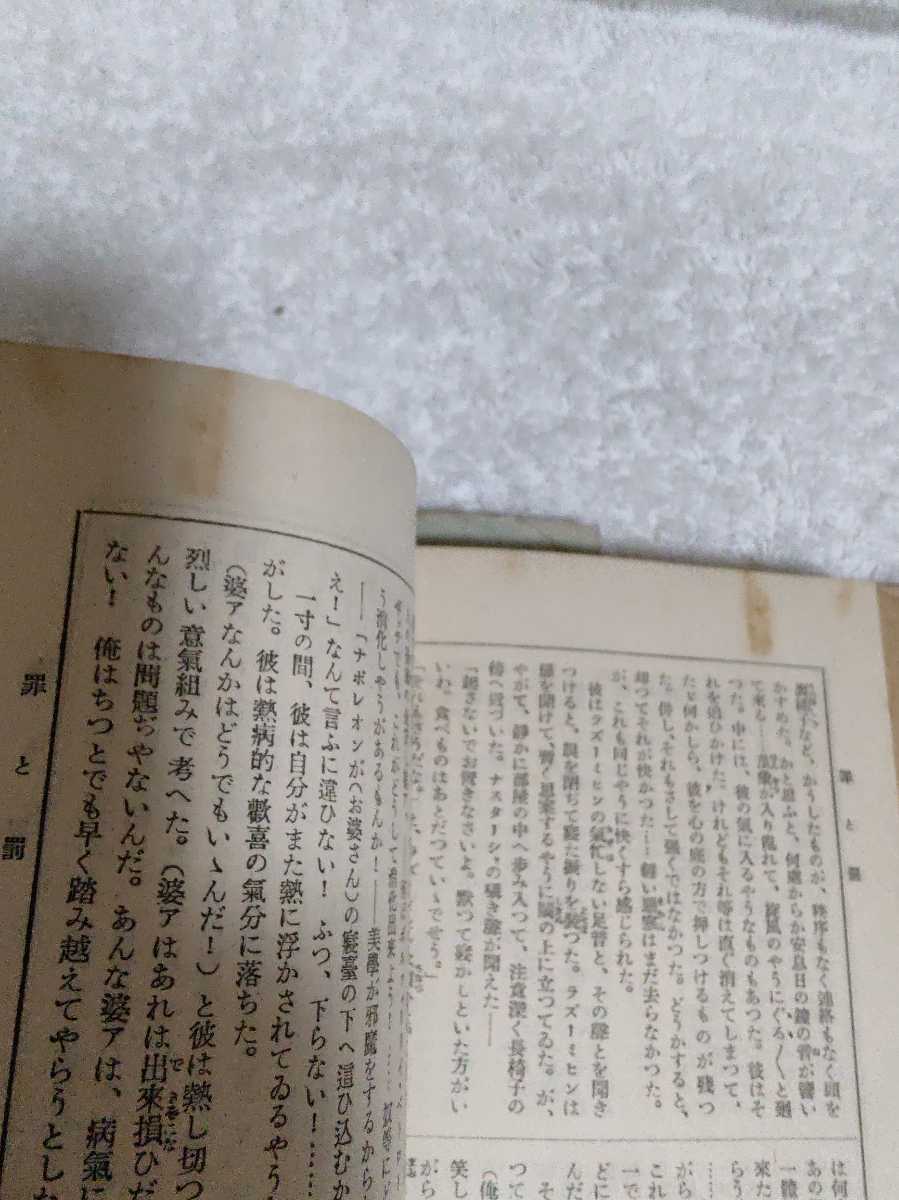 罪と罰
殼梯子など、かうしたものが、秩序もなく連絡もなく頭を
かすめた。かと思ふと、何處からか安息日の鐘の音が響い
て來る……
つた。中には、彼の氣に入るやうなものもあつた。彼はそ
れを追ひかけた。けれどもそれ等は直ぐ消えてしまつて、
たゞ何かしら、彼を心の底の方で押しつけるものが殘つ
た。併し、それもさして强くではなかつた。どうかすると、
却つてそれが快かつた……輕い惡寒はまだ去らなかつた
が、これも同じやうに快くすら感じられた。
彼はラズーミヒンの氣忙しない足音と、その聲とを聞き
つけると、眼を閉ぢて寢た振りを裝つた。ラズーミヒンは
扉を開けて、暫く思案するやうに閾の上に立つてゐた。が、
やがて、靜かに部屋の中へ歩み入つて、注意深く長椅子の
傍へ近づいた。ナスターシャの囁き聲が聞えた――
「起さないでお置きなさいよ。默つて寢かしといた方がい
いわ。食べものはあとだつていゝでせう。」
は何
あの
一體
來た
らう
……
がら
これ
一で
どに
んだ
そ
つて
（俺
笑し
がら
う消化しやうがあるもんか！――美學が邪魔をするから
――「ナポレオンが（お婆さん）の寢臺の下へ這ひ込むか
え！」なんて言ふに違ひない！　ふつ、下らない！……
一寸の間、彼は自分がまた熱に浮かされてゐるやう
がした。彼は熱病的な歡喜の氣分に落ちた。
（婆アなんかはどうでもいゝんだ！）と彼は熱し切つ
烈しい意氣組みで考へた。（婆アはあれは出來損ひだ
んなものは問題ぢやないんだ。あんな婆アは、病氣に
ない！　俺はちつとでも早く踏み越えてやらうとした
罪と罰